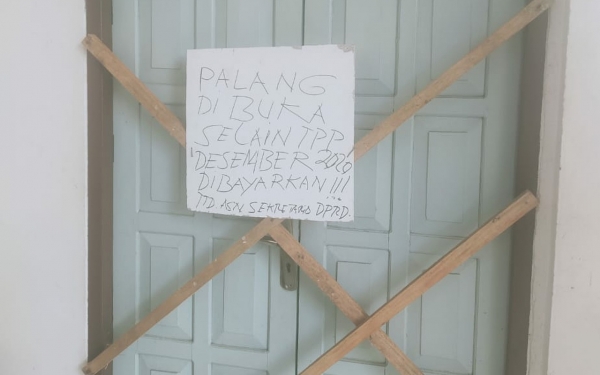 PALANG
DI BUKA
SELAIN TPP
DESEMBER 2020
DIBAYARKAN!!!
TTD ASN SEKRETARIS DPRD.